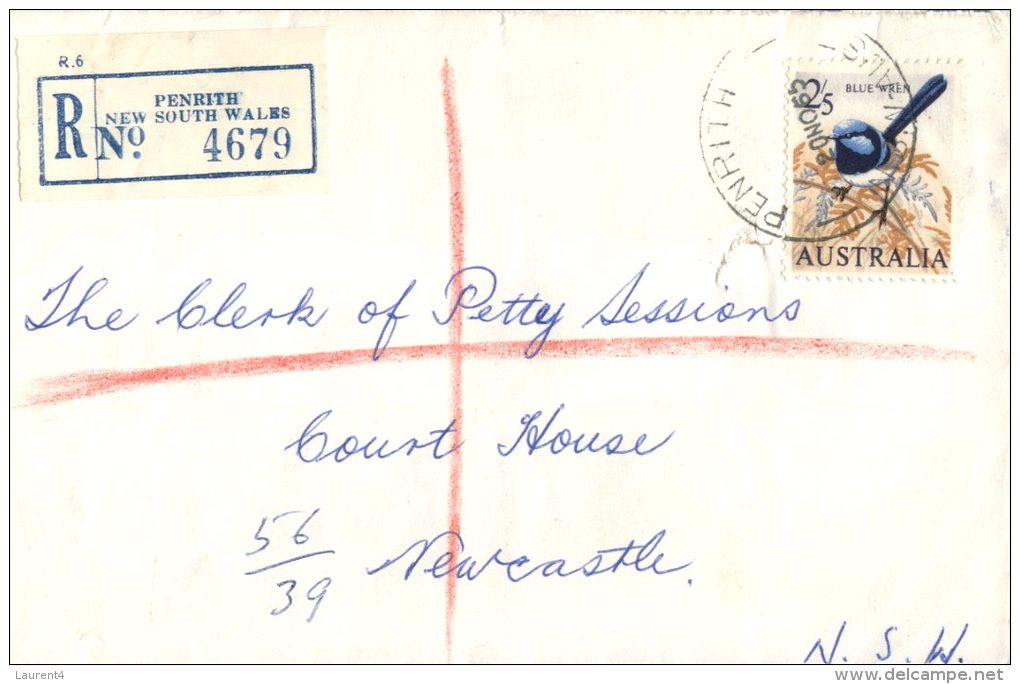 R.6
R PENRITH
NEW SOUTH WALES
No. 4679
PENRITH
20NO65
2/5 BLUE WREN
AUSTRALIA
The Clerk of Petty Sessions
Court House
56
39
Newcastle.
N. S. W.
Laurent4
delcampe.net